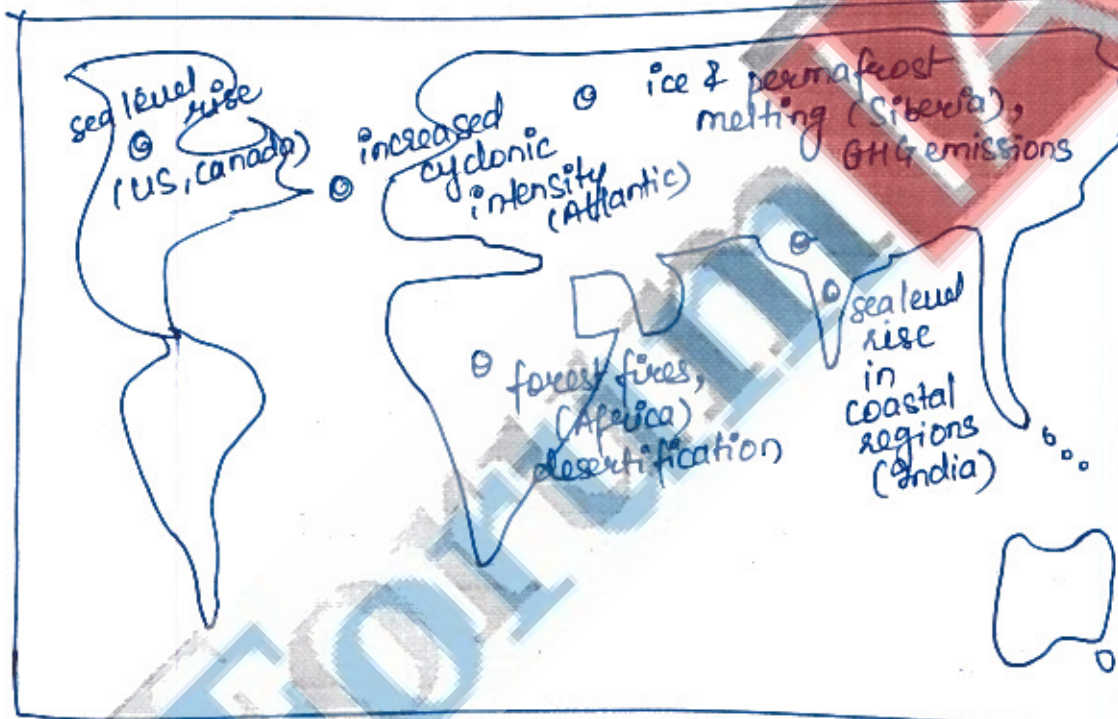 sea level
rise
(US, Canada)
increased
cyclonic
intensity
(Atlantic)
ice & permafrost
melting (Siberia),
GHG emissions
forest fires,
(Africa)
desertification
sea level
rise
in
coastal
regions
(India)
Forum IA